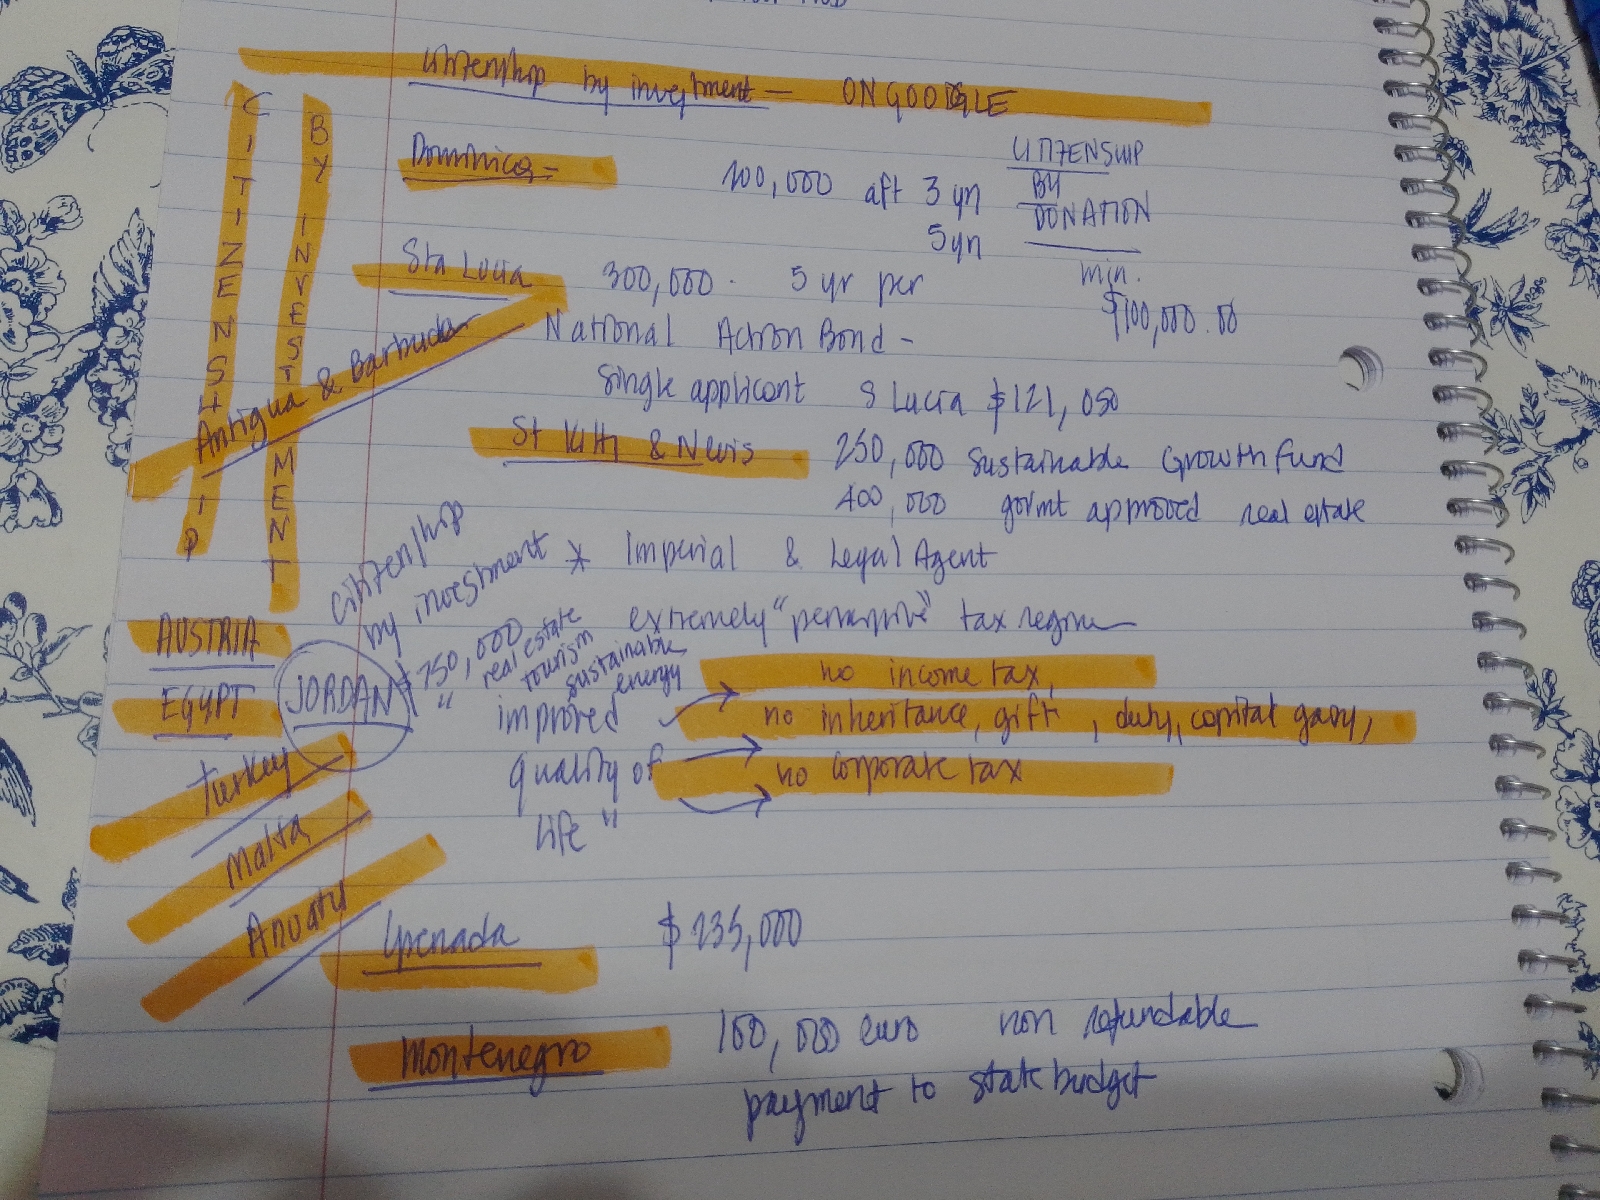 Citizenship by investment — ON GOOGLE
CITIZENSHIP
BY INVESTMENT
Dominica - 100,000 aft 3 yr
5 yr
CITIZENSHIP
BY
DONATION
min.
$100,000.00
Sta Lucia 300,000. 5 yr per
National Action Bond -
single applicant S Lucia $121,050
Antigua & Barbuda
St Kitts & Nevis 250,000 Sustainable Growth Fund
400,000 govmt approved real estate
citizenship
by investment * Imperial & Legal Agent
extremely " " tax regime
AUSTRIA
EGYPT
JORDAN $750,000
" real estate
tourism
sustainable
energy
improved
quality of
life "
no income tax,
no inheritance, gift, duty, capital gains,
no corporate tax
Turkey
Malta
Anuatu
Grenada $235,000
Montenegro 100,000 euro non refundable
payment to state budget